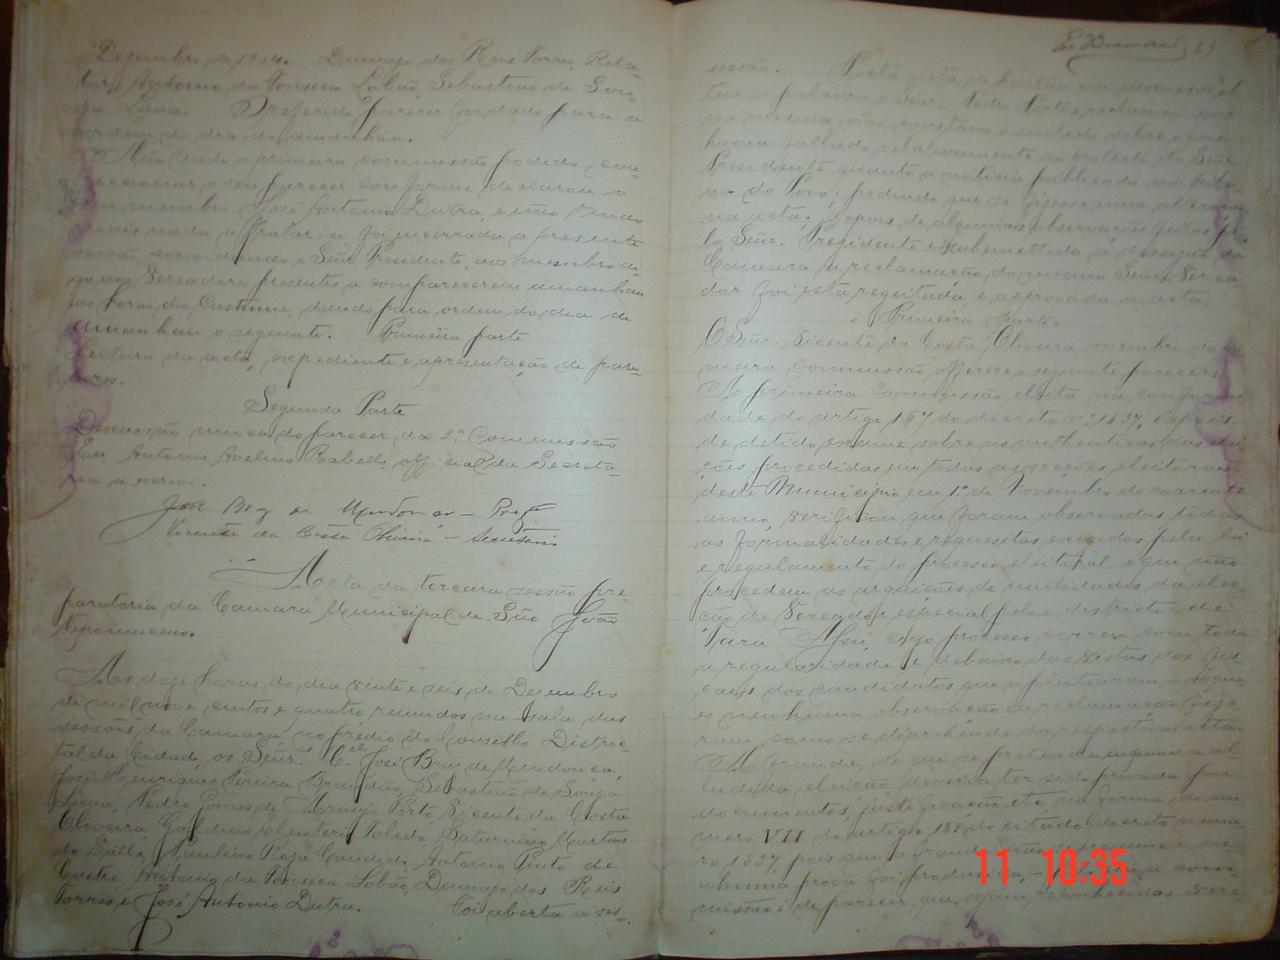 Dezembro de 1904. Domingo dos Reis Torres, Rela-
tor, Antonio da Fonseca Lobão, Sebastião de Sou-
za Lima. O referido parecer foi dado para a
ordem do dia de amanhãn.
Não tendo a primeira commissão podido con-
feccionar o seu parecer conforme declarou o
seu membro José Antonio Dutra, e não tendo
mais nada a tratar-se foi incerrada a presente
sessão, convidando o Señr Presidente, aos membro di-
go aos Vereadores presentes a comparecerem amanhan
as horas do Custume, dando para ordem do dia de
amanhan o seguinte. Primeira parte
Leitura da acta, expediente e apresentação de pare-
ceres.
Segunda Parte
Discussão unica do parecer da 2.ª Commissão
Eu, Antonio Avelino Rabello, official da Secreta-
ria a escrevi.
José Braz de Mendonça - Presid.
Vicente da Costa Oliveira - Secretario
Acta da terceira sessão pre-
paratoria da Camara Municipal de São João
Nepomuceno.
Aos doze horas do dia vinte e seis de Dezembro
de mil nove centos e quatro, reunidos na sala das
sessões da Camara no prédio do Conselho Distric-
tal da Cidade, os Señr.s C.el José Braz de Mendonça,
José Henriques Pereira Brandão, Sebastião de Souza
Lima, Pedro Gomes de Araujo Porto, Vicente da Costa
Oliveira, Galdino Eleuterio Toledo, Saturnino Martins
do Valle, Paulino Roza Candido, Antonio Pinto de
Castro, Antonio da Fonseca Lobão, Domingo dos Reis
Torres e José Antonio Dutra. Foi aberta a ses-
sessão. Posta acta de hontem em discussão,
teve a palavra o Señr. Pedro Porto e reclamou que
na mesma não constava o sentido sobre o que
havia fallado relativamente ao protesto do Señr.
Presidente quanto a noticia publicada na
do Povo; pedindo que se fizesse uma altera-
na acta; depois de algumas observações feitas pe-
lo Señr. Presidente e submettida á decisão da
Camara a reclamação do mesmo Señr. Verea-
dor foi esta regeitada, e approvada a acta.
Primeira Parte.
O Señr. Vicente da Costa Oliveira, membro da
commissão, offerece o seguinte parecer:
A primeira Commissão, eleita na confor-
dade do artigo 167 do decreto nº 1637, depois
de detido exame sobre as authenticas das elei-
ções procedidas em todas as secções eleitoraes
deste Municipio em 1º de Novembro do corrente
anno, verificou que foram observadas todas
as formalidades e requesitos exegidos pela lei
e regulamento do processo eleitoral e que não
procedem as arguições de nullidades da elei-
ção de Vereador especial pelo o districto de
cujo processo correu com toda
a regularidade e debaixo das vistas dos fis-
caes dos candidatos que a pleitearam, os
es nenhuma observação ou reclamação fize-
ram como se deprehende da respectiva acta.
A fraude, de que se pretende inquinar a al-
ludida eleição, deveria ter sido provada por
documentos, justificação, etc, na forma do nu-
mero VII do artigo do citado decreto nume-
ro 1637, pois que a fraude não se presume e ne-
nhuma prova foi produzida, a com-
missão é de parecer que sejam reconhecidos Vere
11 10:35